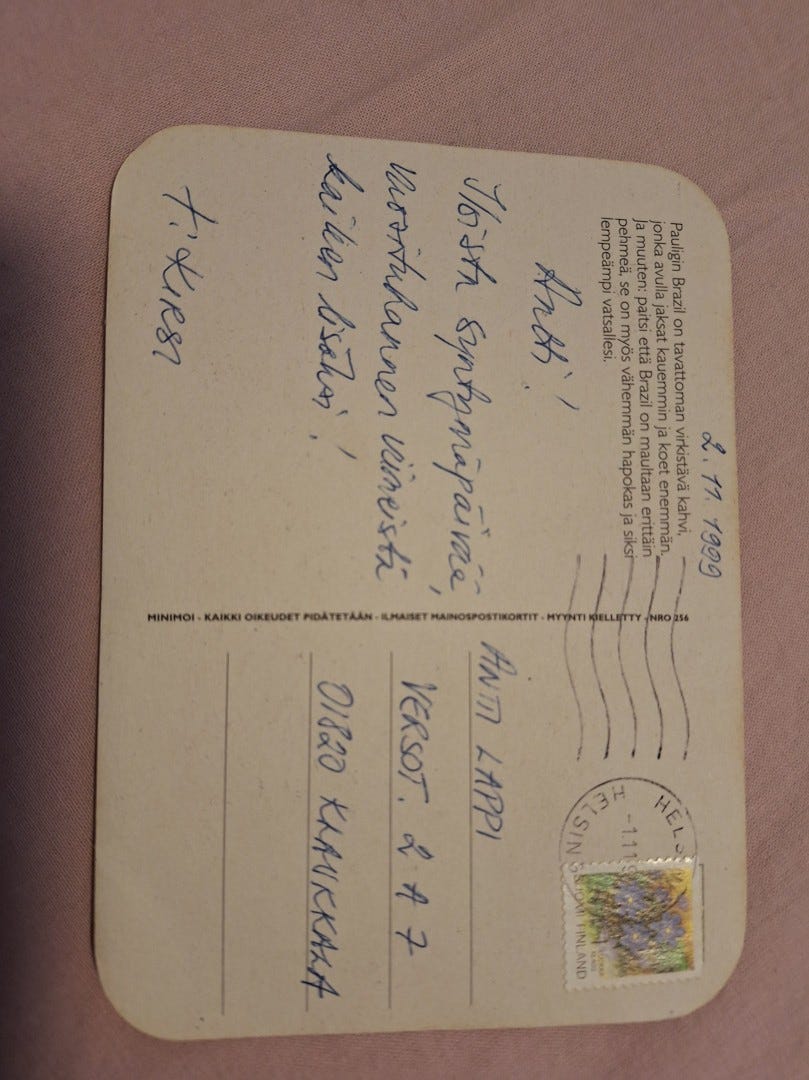 2.11.1999
Pauligin Brazil on tavattoman virkistävä kahvi,
jonka avulla jaksat kauemmin ja koet enemmän.
Ja muuten: paitsi että Brazil on maultaan erittäin
pehmeä, se on myös vähemmän hapokas ja siksi
lempeämpi vatsallesi.
Antti!
Iloista syntymäpäivää,
vuosituhannen viimeistä
kaiken lisäksi!
t: KIRSI
MINIMOI - KAIKKI OIKEUDET PIDÄTETÄÄN - ILMAISET MAINOSPOSTIKORTIT - MYYNTI KIELLETTY - NRO 256
HELSIN
-1.11.
SUOMI FINLAND
ANTTI LAPPI
VERSOT. 2 A 7
01820 KLAUKKALA